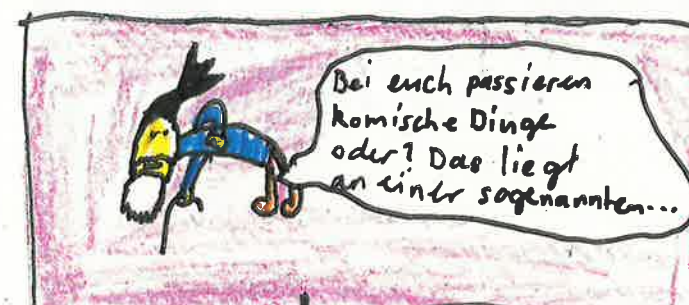 Bei euch passieren
komische Dinge
oder? Das liegt
an einer sogenannten...